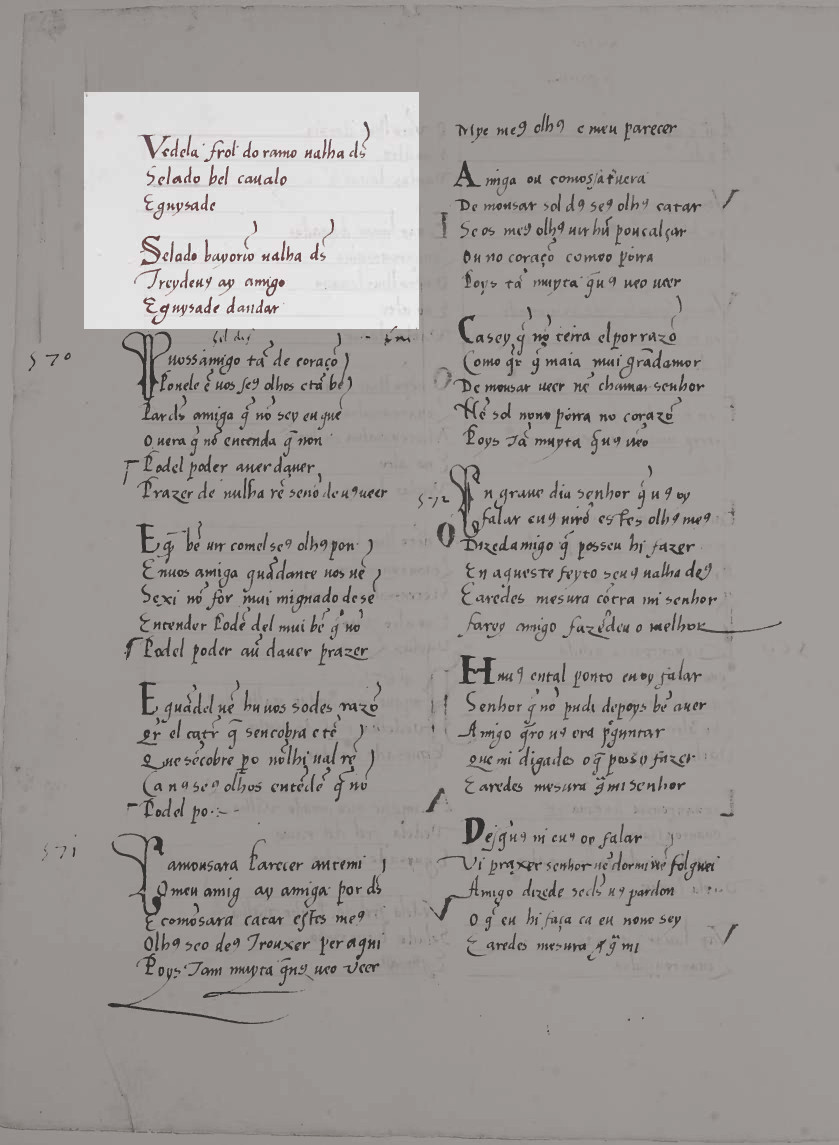 Vedela frol do ramo ualha ds̄
Selado bel caualo
Eguysade
Selado bayorio ualha ds̄
Treydeuꝯ ay amigo
Eguysade dandar
570
Puossamigo tā de coraçō
Ponele ē uos seꝯ olhos e tā bē
Par ds̄ amiga q̄ nō sey eu quē
O uera q̄ nō entenda q̄ non
Podel poder auer dauer
Prazer de nulha rē senō deuꝯ ueer
E q̄ bē uir comel seꝯ olhꝯ pon
En uos amiga quādante uos uē
Se xi nō for mui mignado de sē
Entender Podē del mui bē q̄ nō
Podel poder au̅ dauer prazer
E quādel uē hu uos sodes razō
Qr̄ el catr̄ q̄ sencobra e tē
Que sēcobre po nōlhi ual rē
Ca nꝯ seꝯ olhos entēdē q̄ nō
Podel po
571
Pamousara Parecer ante mi
O meu amig ay amiga por ds̄
E comousara catar estes meꝯ
Olhꝯ seo deꝯ Trouxer per aqui
Poys Tam muyta q̄ nꝯ ueo Veer
Mye meꝯ olhꝯ e meu parecer
Amiga ou comossatreuera
De mousar sol dꝯ seꝯ olhꝯ catar
Se os meꝯ olhꝯ uir hū poucalçar
Ou no coraçō comoo porra
Poys tā muyta q̄ nꝯ ueo ueer
Ca sey q̄ nō terra el por razō
Como qr̄ q̄ maia mui grādamor
De mousar ueer nē chamar senhor
Nē sol nono porra no corazō
Poys Tā muyta q̄ uꝯ ueo
572
En graue dia senhor q̄ uꝯ oy
falar e uꝯ uirō estes olhꝯ meꝯ
Dized amigo q̄ posseu hi fazer
En aqueste feyto se uꝯ ualha deꝯ
Earedes mesura cōtra mi senhor
farey amigo fazēdeu o melhor
Hu uꝯ en tal ponto eu oy falar
Senhor q̄ nō pudi depoys bē auer
Amigo q̄ro uꝯ ora p̄guntar
Que mi digades o q̄ posso fazer
Earedes mesura q̄ mi senhor
Des q̄ uꝯ ui e uꝯ oy falar
Vi prazer senhor nē dormi nē folguei
Amigo dizede se ds̄ uꝯ pardon
O q̄ eu hi faça ca eu nono sey
Earedes mesura q̄ mi